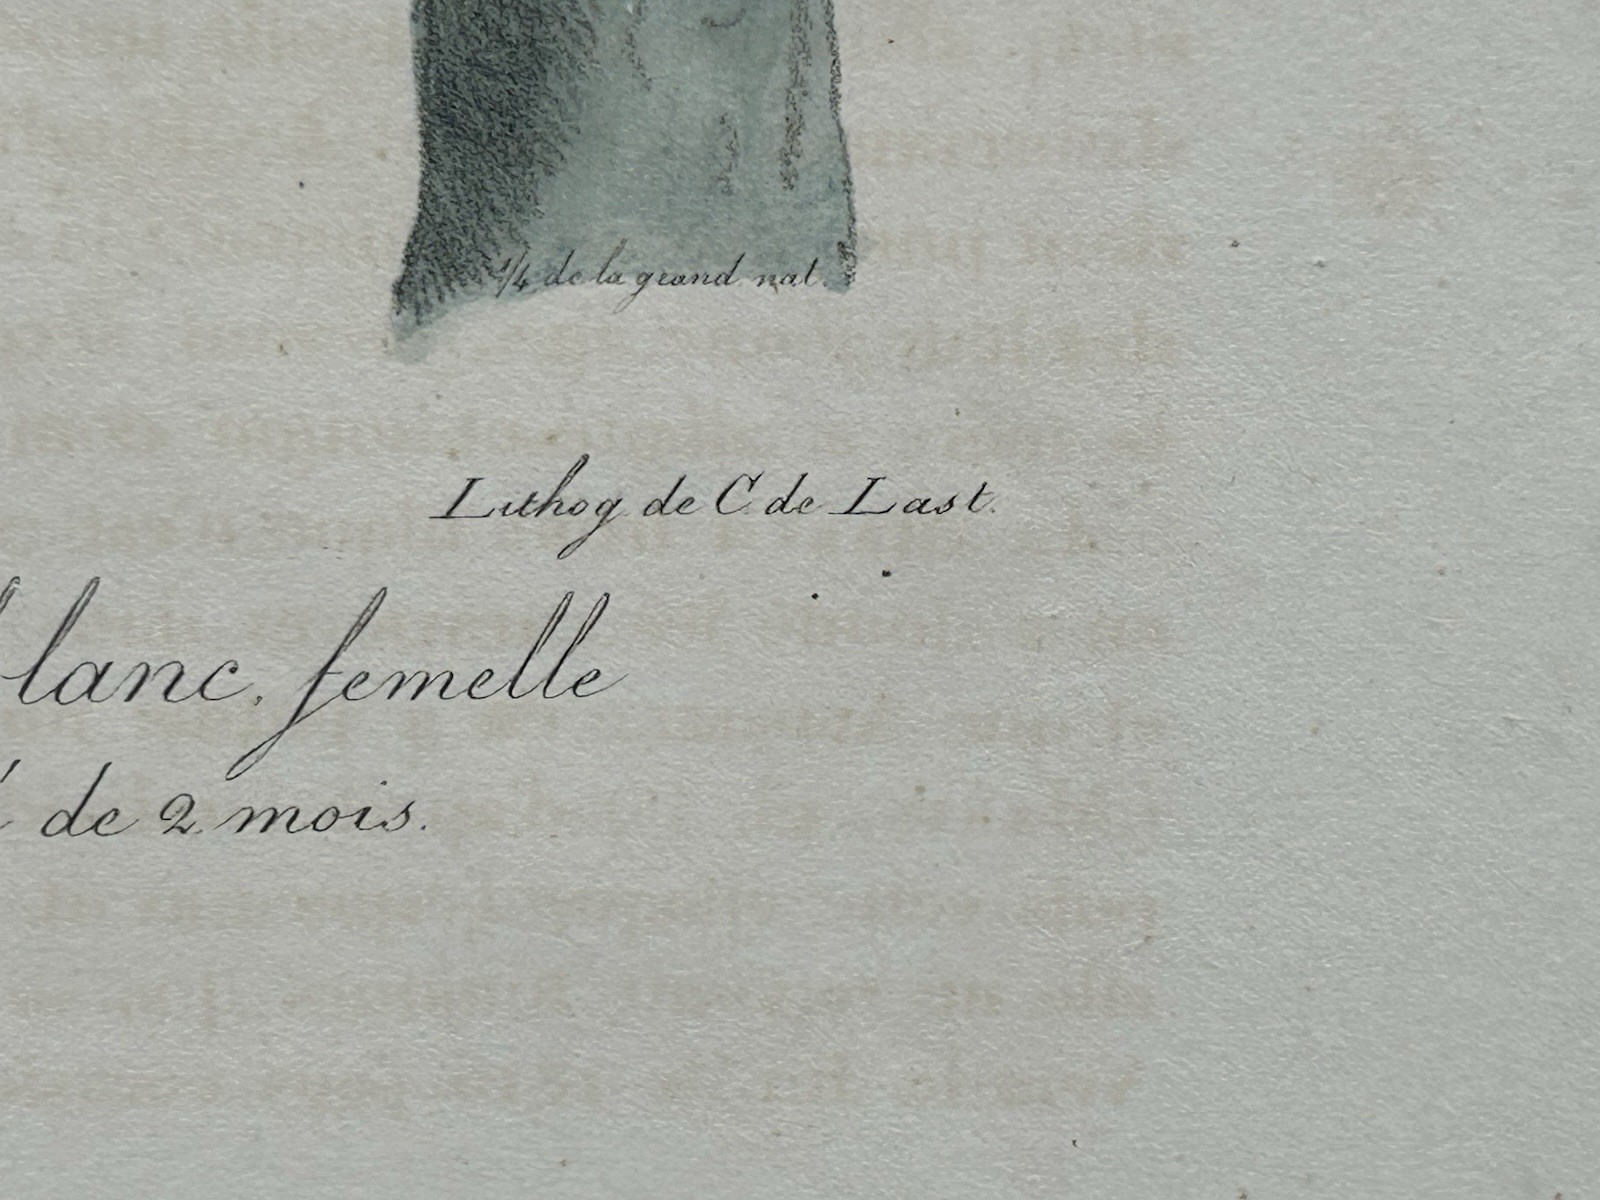 1/4 de la grand. nat.
Lithog de C. de Last.
lanc, femelle
de 2 mois.